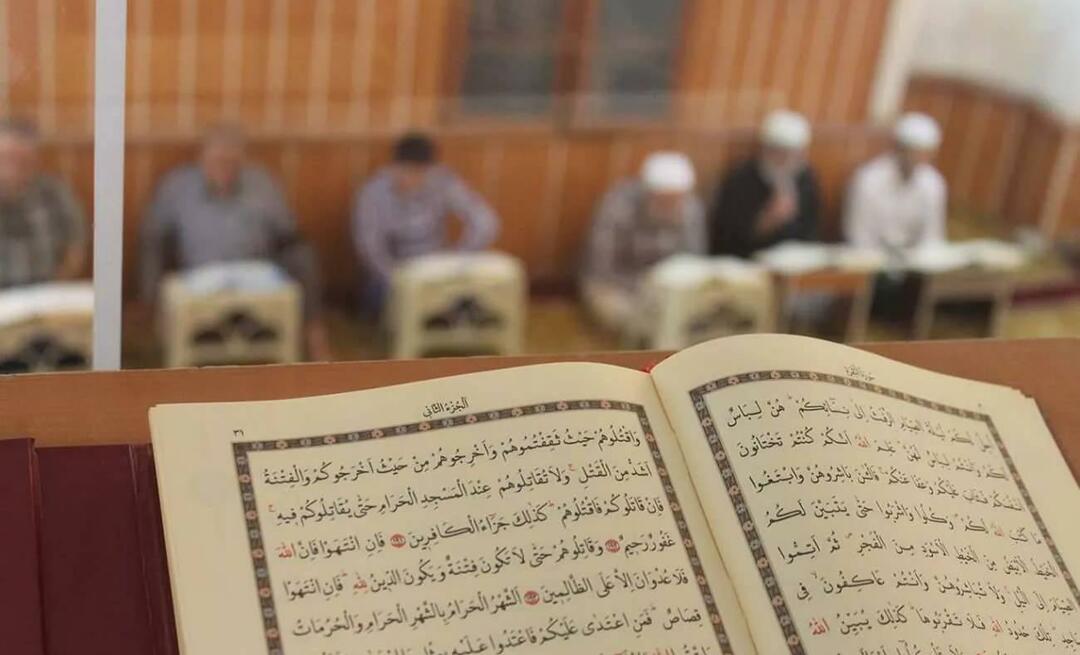 سورة البقرة
اُحِلَّ لَكُمْ لَيْلَةَ الصِّيَامِ الرَّفَثُ اِلٰى نِسَٓائِكُمْ هُنَّ لِبَاسٌ
لَكُمْ وَاَنْتُمْ لِبَاسٌ لَهُنَّ عَلِمَ اللّٰهُ اَنَّكُمْ كُنْتُمْ تَخْتَانُونَ
اَنْفُسَكُمْ فَتَابَ عَلَيْكُمْ وَعَفَا عَنْكُمْ فَالْـٰٔنَ بَاشِرُوهُنَّ وَابْتَغُوا
مَا كَتَبَ اللّٰهُ لَكُمْ وَكُلُوا وَاشْرَبُوا حَتّٰى يَتَبَيَّنَ لَكُمُ
الْخَيْطُ الْاَبْيَضُ مِنَ الْخَيْطِ الْاَسْوَدِ مِنَ الْفَجْرِ ثُمَّ اَتِمُّوا
الصِّيَامَ اِلَى الَّيْلِ وَلَا تُبَاشِرُوهُنَّ وَاَنْتُمْ عَاكِفُونَ فِي
تِلْكَ حُدُودُ اللّٰهِ فَلَا تَقْرَبُوهَا كَذٰلِكَ يُبَيِّنُ اللّٰهُ
الجزء الثاني
وَاقْتُلُوهُمْ حَيْثُ ثَقِفْتُمُوهُمْ وَاَخْرِجُوهُمْ مِنْ حَيْثُ اَخْرَجُوكُمْ وَالْفِتْنَةُ
اَشَدُّ مِنَ الْقَتْلِ وَلَا تُقَاتِلُوهُمْ عِنْدَ الْمَسْجِدِ الْحَرَامِ حَتّٰى يُقَاتِلُوكُمْ فِيهِ
فَاِنْ قَاتَلُوكُمْ فَاقْتُلُوهُمْ كَذٰلِكَ جَزَٓاءُ الْكَافِرِينَ ﴿١٩١﴾ فَاِنِ انْتَهَوْا فَاِنَّ اللّٰهَ
غَفُورٌ رَحِيمٌ ﴿١٩٢﴾ وَقَاتِلُوهُمْ حَتّٰى لَا تَكُونَ فِتْنَةٌ وَيَكُونَ الدِّينُ لِلّٰهِ فَاِنِ انْتَهَوْا
فَلَا عُدْوَانَ اِلَّا عَلَى الظَّالِمِينَ ﴿١٩٣﴾ اَلشَّهْرُ الْحَرَامُ بِالشَّهْرِ الْحَرَامِ وَالْحُرُمَاتُ
قِصَاصٌ فَمَنِ اعْتَدٰى عَلَيْكُمْ فَاعْتَدُوا عَلَيْهِ بِمِثْلِ